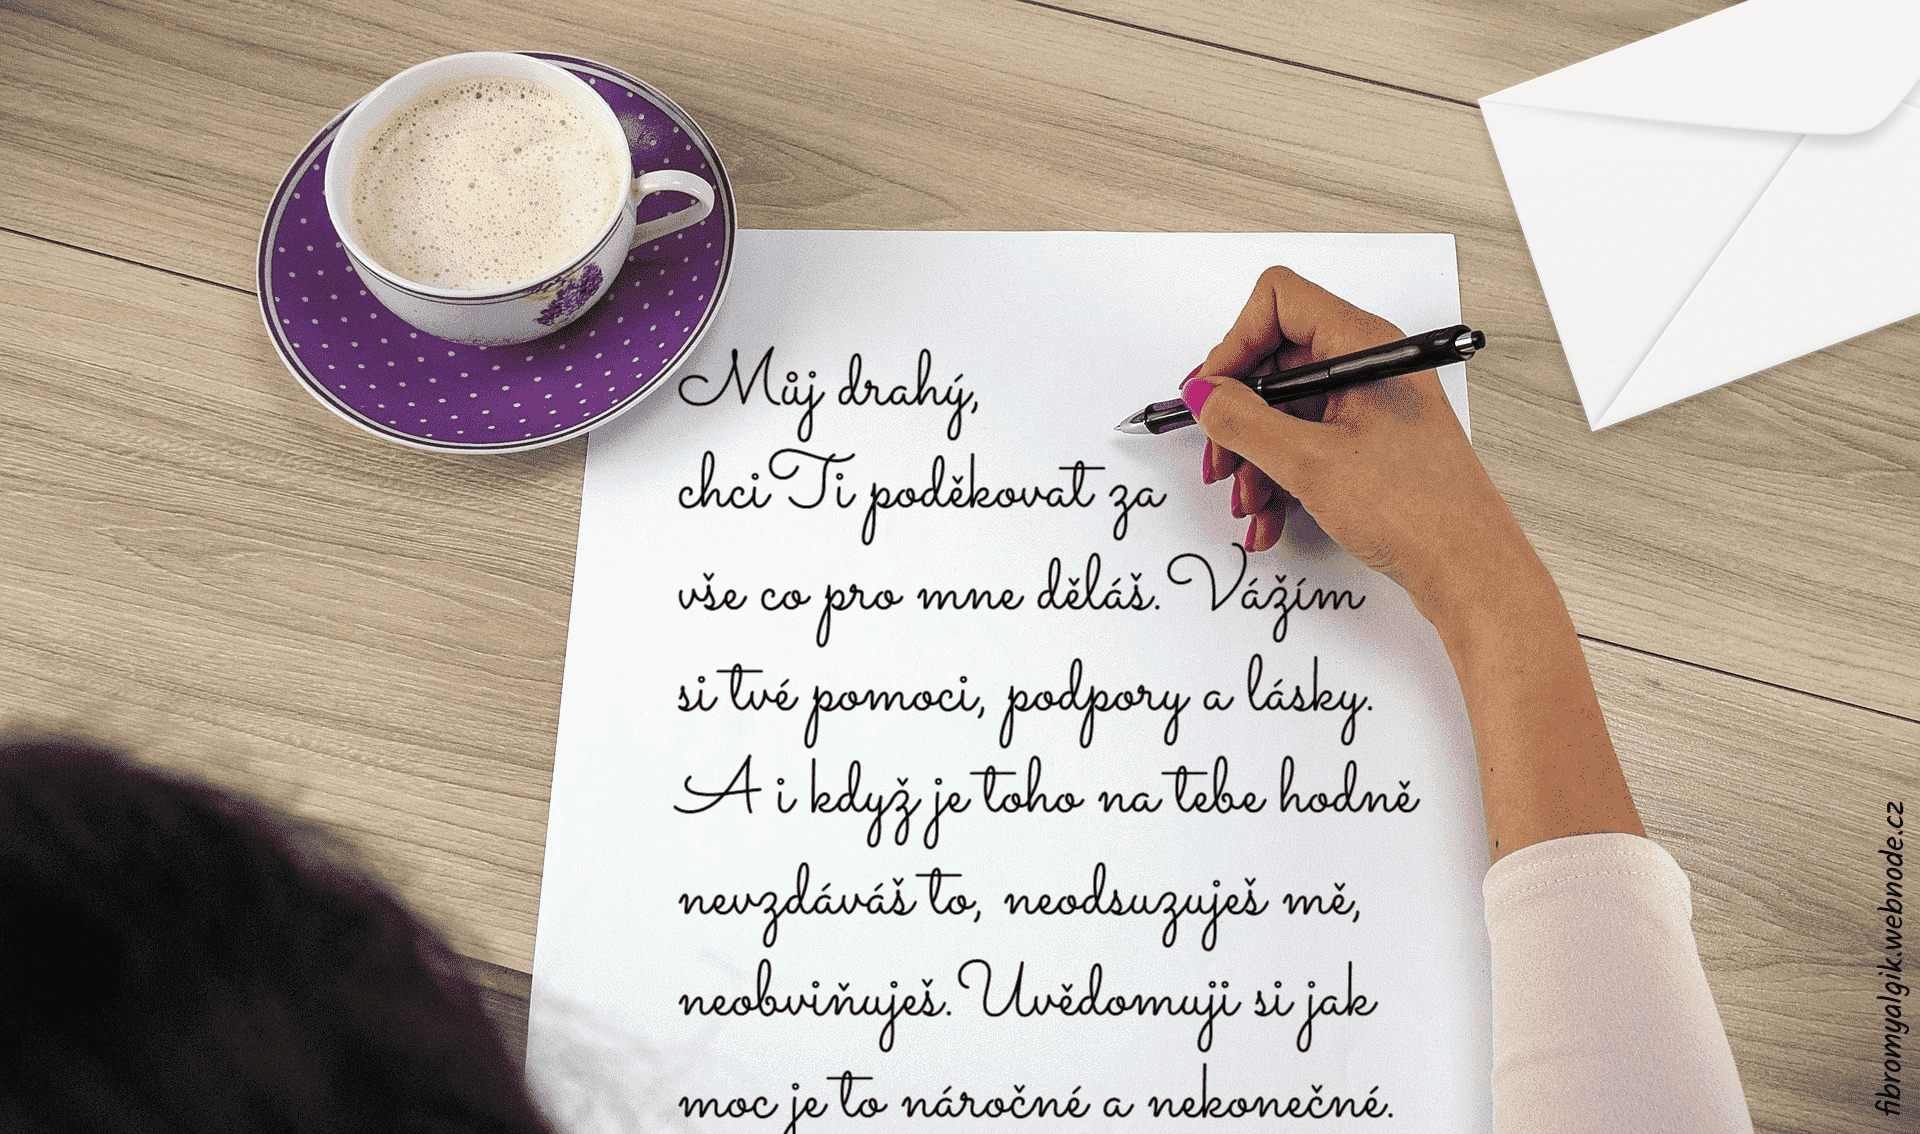 Můj drahý,
chci Ti poděkovat za
vše co pro mne děláš. Vážím
si tvé pomoci, podpory a lásky.
A i když je toho na tebe hodně
nevzdáváš to, neodsuzuješ mě,
neobviňuješ. Uvědomuji si jak
moc je to náročné a nekonečné.
fibromyalgik.webnode.cz